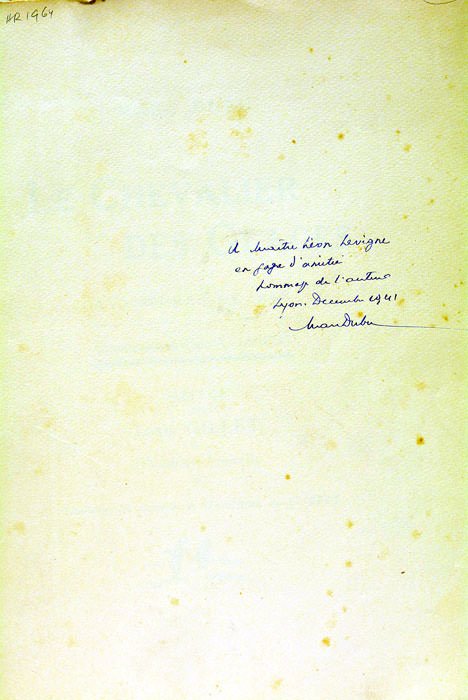 HR 1964
A Maître Léon Levigne
en gage d'amitié
hommage de l'auteur
Lyon. Decembre 1941